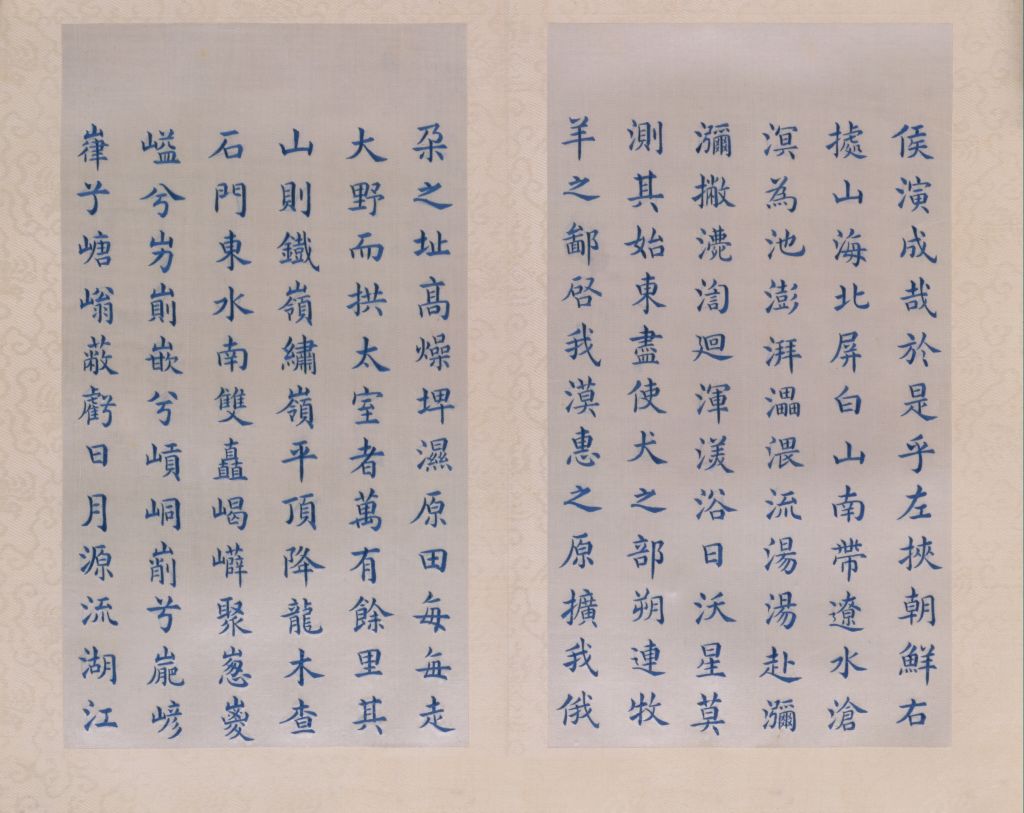 侯演成哉於是乎左挾朝鮮右
據山海北屏白山南帶遼水滄
溟為池澎湃渨流湯湯赴瀰
瀰撇迴渾渼浴日沃星莫
測其始東盡使犬之部朔連牧
羊之鄙啓我漠惠之原擴我俄
朶之址高燥埤濕原田每每走
大野而拱太室者萬有餘里其
山則鐵嶺繡嶺平頂降龍木查
石門東水南雙矗嵑聚
兮岃崱嵌兮峒兮
嵂兮嵣嵡蔽虧日月源流湖江